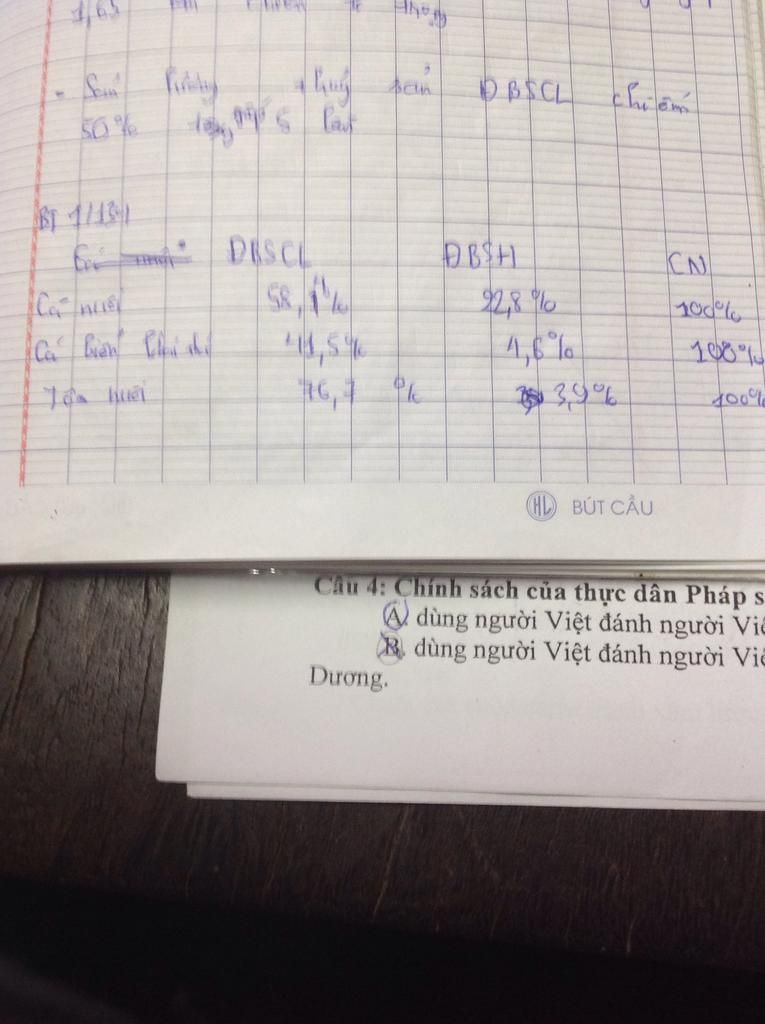 1,65
- Sản lượng thuỷ sản ĐBSCL chiếm
50%
BT 1/134
ĐBSCL ĐBSH CN
Cá nuôi 58,4% 22,8% 100%
Cá biển khai 41,5% 4,6% 100%
Tôm nuôi 76,7 % 3,9% 100%
HL BÚT CẦU
Câu 4: Chính sách của thực dân Pháp s
A. dùng người Việt đánh người Việ
B. dùng người Việt đánh người Việ
Dương.